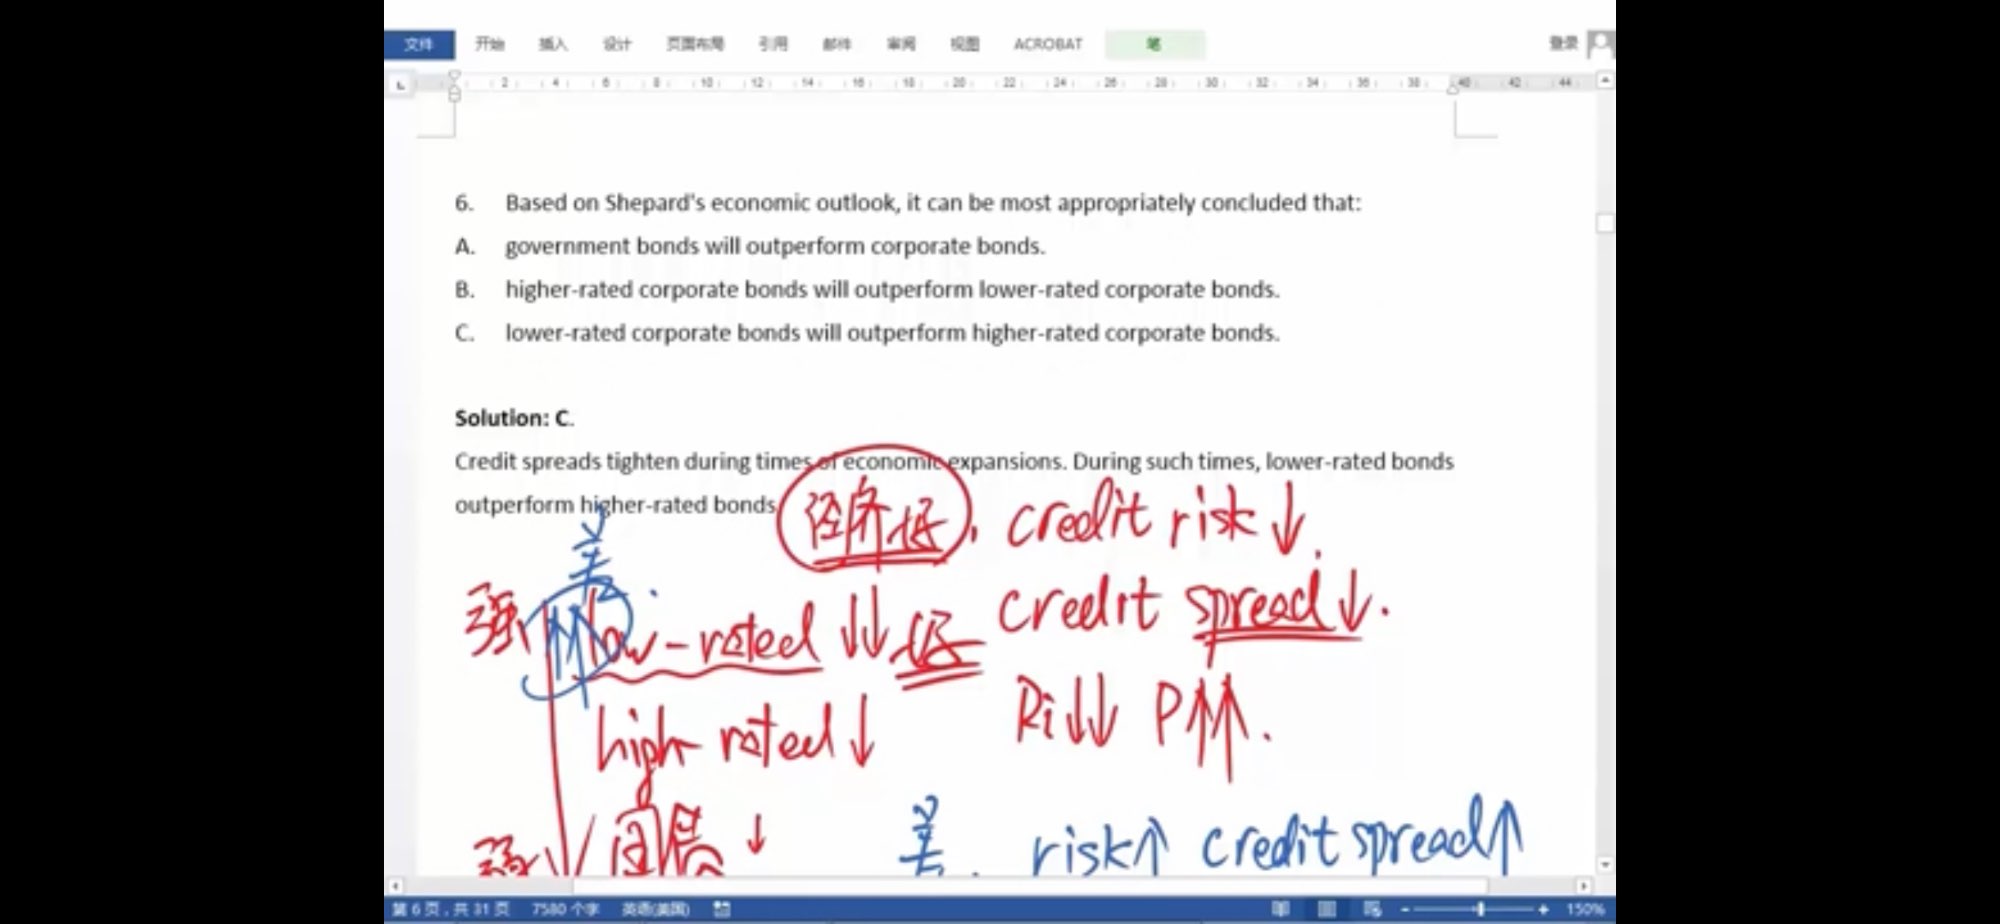 文件 开始 插入 设计 页面布局 引用 邮件 审阅 视图 ACROBAT 笔 登录
2 4 6 8 10 12 14 16 18 20 22 24 26 28 30 32 34 36 38 40 42 44
6. Based on Shepard's economic outlook, it can be most appropriately concluded that:
A. government bonds will outperform corporate bonds.
B. higher-rated corporate bonds will outperform lower-rated corporate bonds.
C. lower-rated corporate bonds will outperform higher-rated corporate bonds.
Solution: C.
Credit spreads tighten during times of economic expansions. During such times, lower-rated bonds
outperform higher-rated bonds
经济好, credit risk↓.
差
强 ↑↑ low-rated ↓↓ 好 credit spread↓.
high rated↓ Ri↓↓ P↑↑.
弱 国债 ↓ 差. risk↑ credit spread↑
第 6 页, 共 31 页 7580 个字 英语(美国) 150%